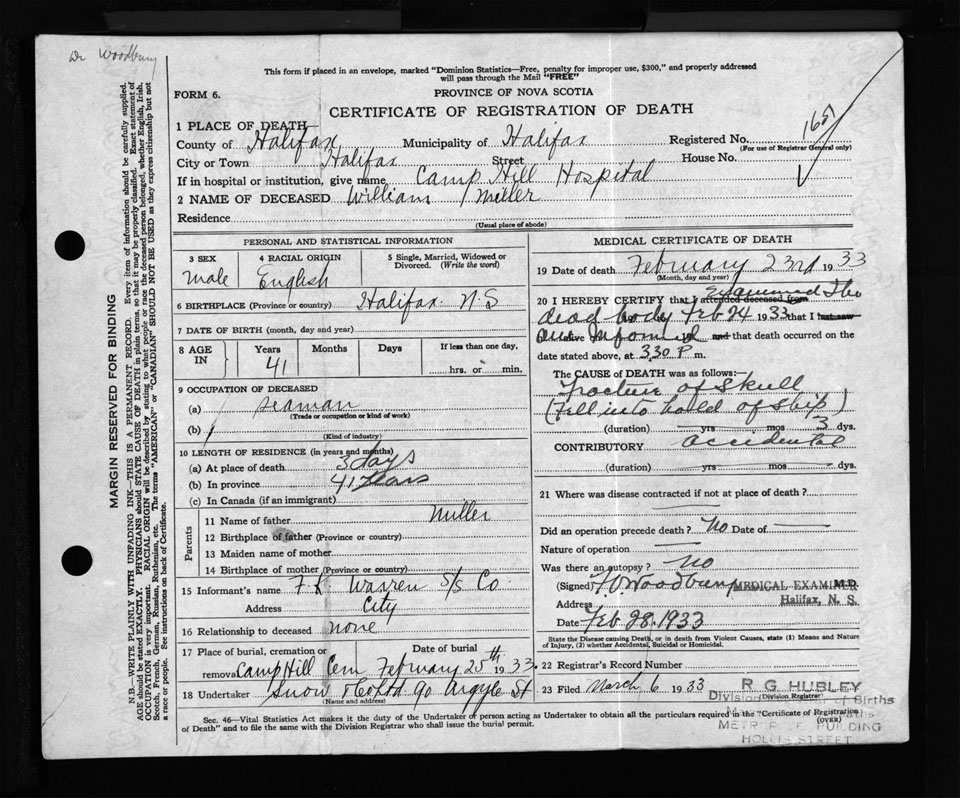 Dr Woodbury
This form if placed in an envelope, marked "Dominion Statistics—Free, penalty for improper use, $300," and properly addressed
will pass through the Mail "FREE"
FORM 6.
PROVINCE OF NOVA SCOTIA
CERTIFICATE OF REGISTRATION OF DEATH
1 PLACE OF DEATH
County of Halifax Municipality of Halifax Registered No. 1651
(For use of Registrar General only)
City or Town Halifax Street House No.
If in hospital or institution, give name Camp Hill Hospital
2 NAME OF DECEASED William Miller
Residence
(Usual place of abode)
PERSONAL AND STATISTICAL INFORMATION
3 SEX 4 RACIAL ORIGIN 5 Single, Married, Widowed or
Divorced. (Write the word)
Male English
6 BIRTHPLACE (Province or country) Halifax. N.S
7 DATE OF BIRTH (month, day and year)
8 AGE IN Years Months Days If less than one day,
41 hrs. or min.
9 OCCUPATION OF DECEASED
(a) seaman
(Trade or occupation or kind of work)
(b)
(Kind of industry)
10 LENGTH OF RESIDENCE (in years and months)
(a) At place of death 3 days
(b) In province 41 years
(c) In Canada (if an immigrant)
Parents
11 Name of father Miller
12 Birthplace of father (Province or country)
13 Maiden name of mother
14 Birthplace of mother (Province or country)
15 Informant's name F. K. Warren S/S Co.
Address City
16 Relationship to deceased none
17 Place of burial, cremation or Date of burial
removal Camp Hill Cem February 25th 1933.
18 Undertaker Snow & Co Ltd 90 Argyle St
(Name and address)
MEDICAL CERTIFICATE OF DEATH
19 Date of death February 23rd 1933
(Month, day and year)
20 I HEREBY CERTIFY that I attended deceased from Examined the
dead body Feb 24 1933 that I last saw
alive on informed and that death occurred on the
date stated above, at 3.30 P m.
The CAUSE of DEATH was as follows:—
Fracture of Skull
(Fell into hold of ship)
(duration) yrs mos 3 dys.
CONTRIBUTORY accidental
(duration) yrs mos dys.
21 Where was disease contracted if not at place of death?
Did an operation precede death? No Date of
Nature of operation
Was there an autopsy? No
(Signed) Woodbury MEDICAL EXAMINER M.D.
Address Halifax, N. S.
Date Feb 28. 1933
State the Disease causing Death, or in death from Violent Causes, state (1) Means and Nature
of Injury, (2) whether Accidental, Suicidal or Homicidal.
22 Registrar's Record Number
23 Filed March 6 1933 R G HUBLEY
(Division Registrar)
Division of Births
HOLLIS STREET
Sec. 46—Vital Statistics Act makes it the duty of the Undertaker or person acting as Undertaker to obtain all the particulars required in the "Certificate of Registration
of Death" and to file the same with the Division Registrar who shall issue the burial permit. (OVER)
MARGIN RESERVED FOR BINDING
N.B.—WRITE PLAINLY WITH UNFADING INK—THIS IS A PERMANENT RECORD. Every item of information should be carefully supplied.
AGE should be stated EXACTLY. PHYSICIANS should STATE CAUSE OF DEATH in plain terms, so that it may be properly classified. Exact statement of
OCCUPATION is very important. RACIAL ORIGIN will be described by stating to what people or race the deceased person belonged, whether English, Irish,
Scotch, French, German, Russian, Ruthenian, etc. The terms "AMERICAN" or "CANADIAN" SHOULD NOT BE USED as they express citizenship but not
a race or people. See instructions on back of Certificate.